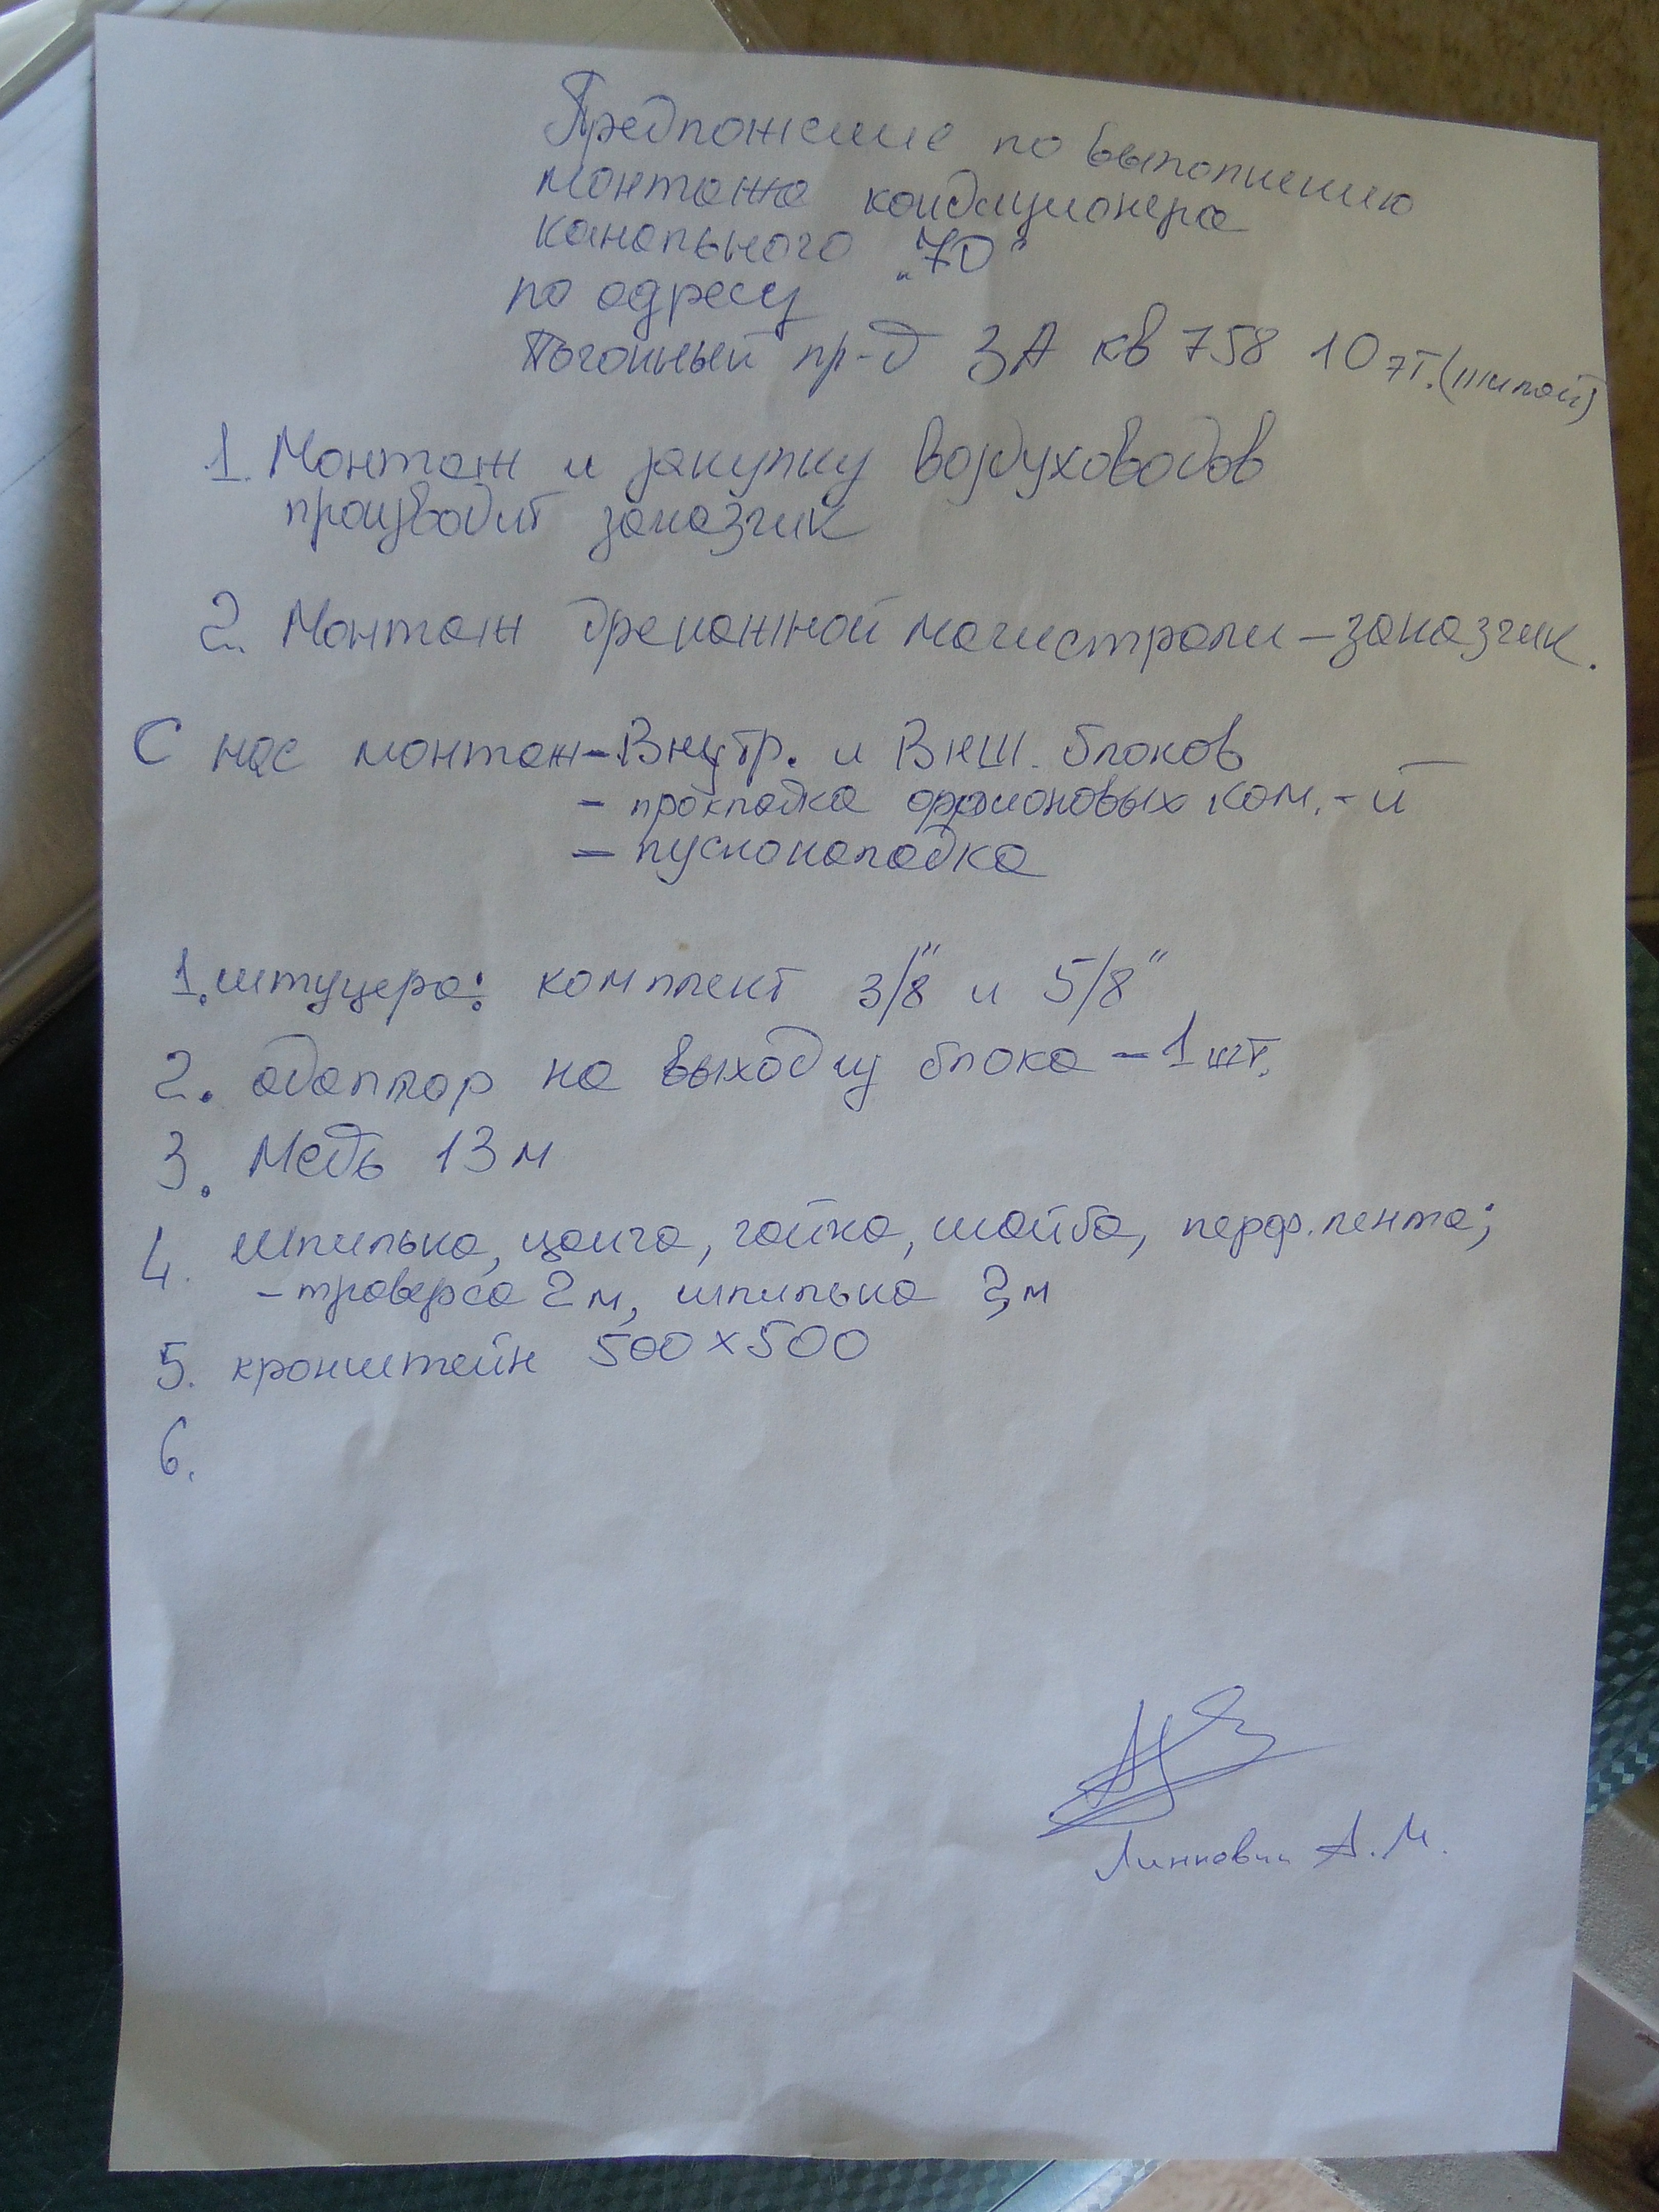 Предложение по выполнению
монтажа кондиционера
канального „70“
по адресу
Погонный пр-д 3А кв 758 10 эт. (жилой)
1. Монтаж и закупку воздуховодов
производит заказчик
2. Монтаж дренажной магистрали - заказчик.
С нас монтаж - Внутр. и Внш. блоков
- прокладка фрионовых ком. - й
- пусконаладка
1. штуцера: комплект 3/8" и 5/8"
2. адаптор на выходу блока - 1 шт.
3. Медь 13 м
4. шпилька, цанга, гайка, шайба, перф. лента;
- траверса 2 м, шпилька 2 м
5. кронштейн 500 х 500
6.
А. М.